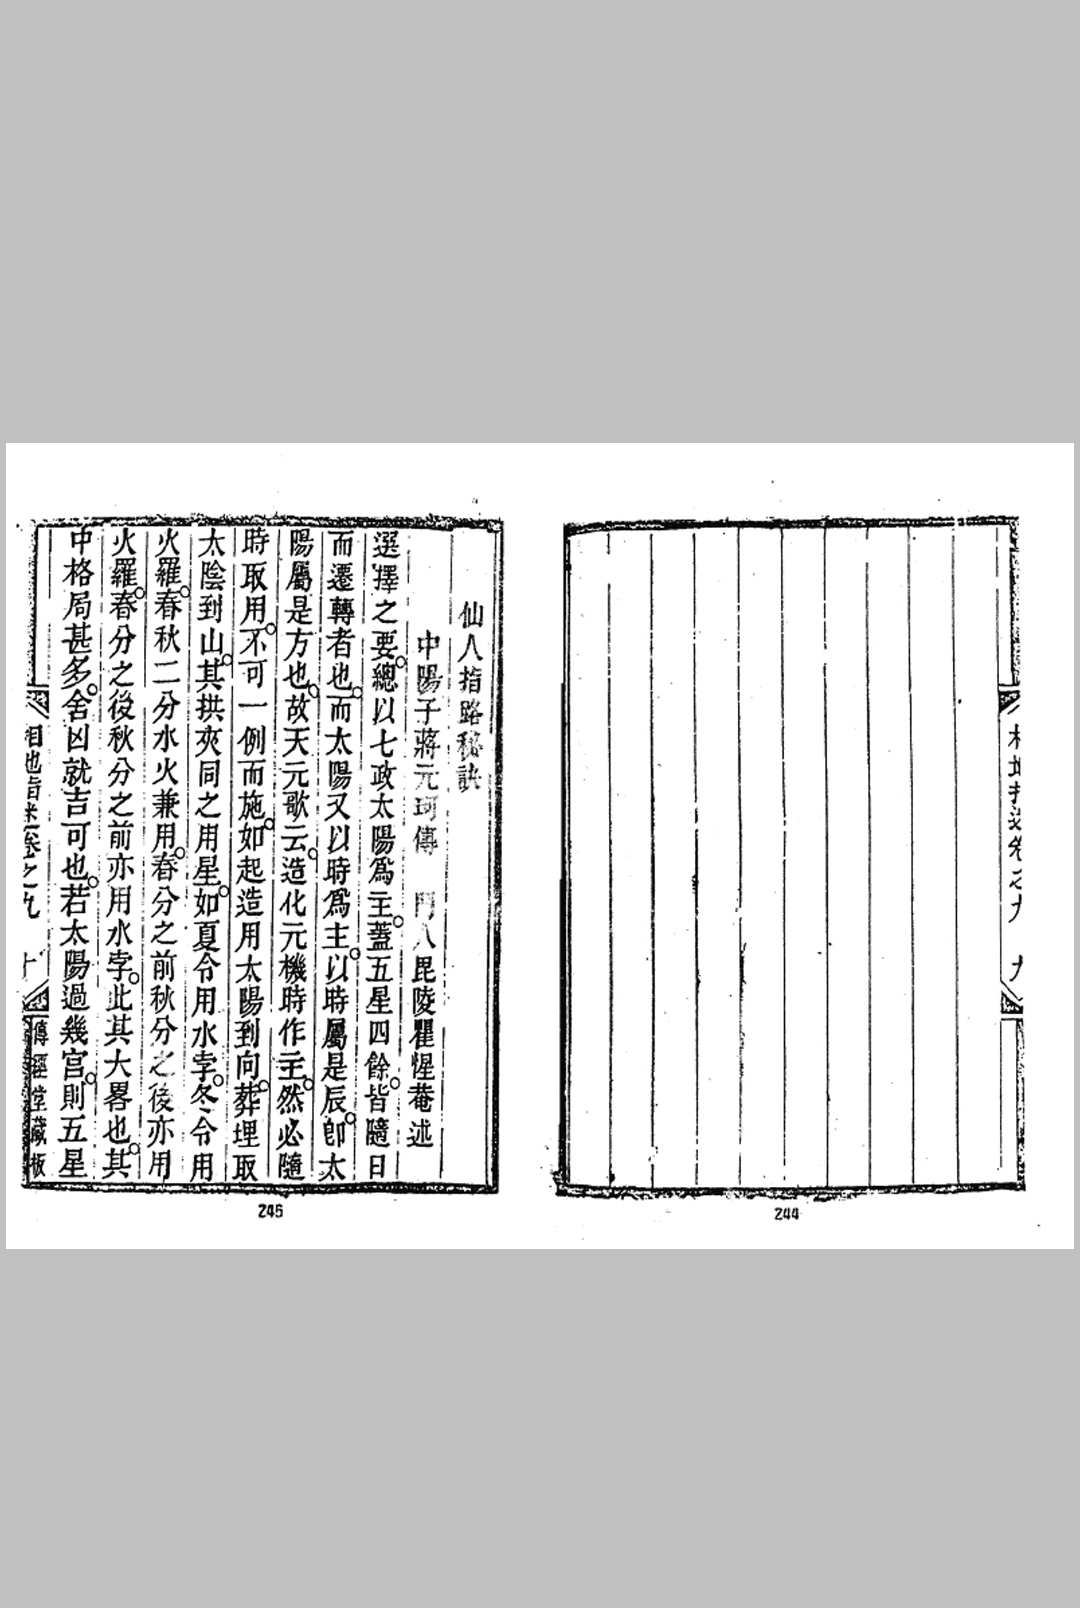 相地指迷卷之九　九
244
仙人指路秘訣
中陽子蔣元珂傳　門人毘陵瞿惺菴述
選擇之要。總以七政太陽爲主。蓋五星四餘。皆隨日
而遷轉者也。而太陽又以時爲主。以時屬是辰。卽太
陽屬是方也。故天元歌云。造化元機時作主。然必隨
時取用。不可一例而施。如起造用太陽到向。葬埋取
太陰到山。其拱夾同之用星。如夏令用水孛。冬令用
火羅。春秋二分水火兼用。春分之前秋分之後亦用
火羅。春分之後秋分之前亦用水孛。此其大畧也。其
中格局甚多。舍凶就吉可也。若太陽過幾宫。則五星
相地指迷卷之九　十　傳經堂藏板
245